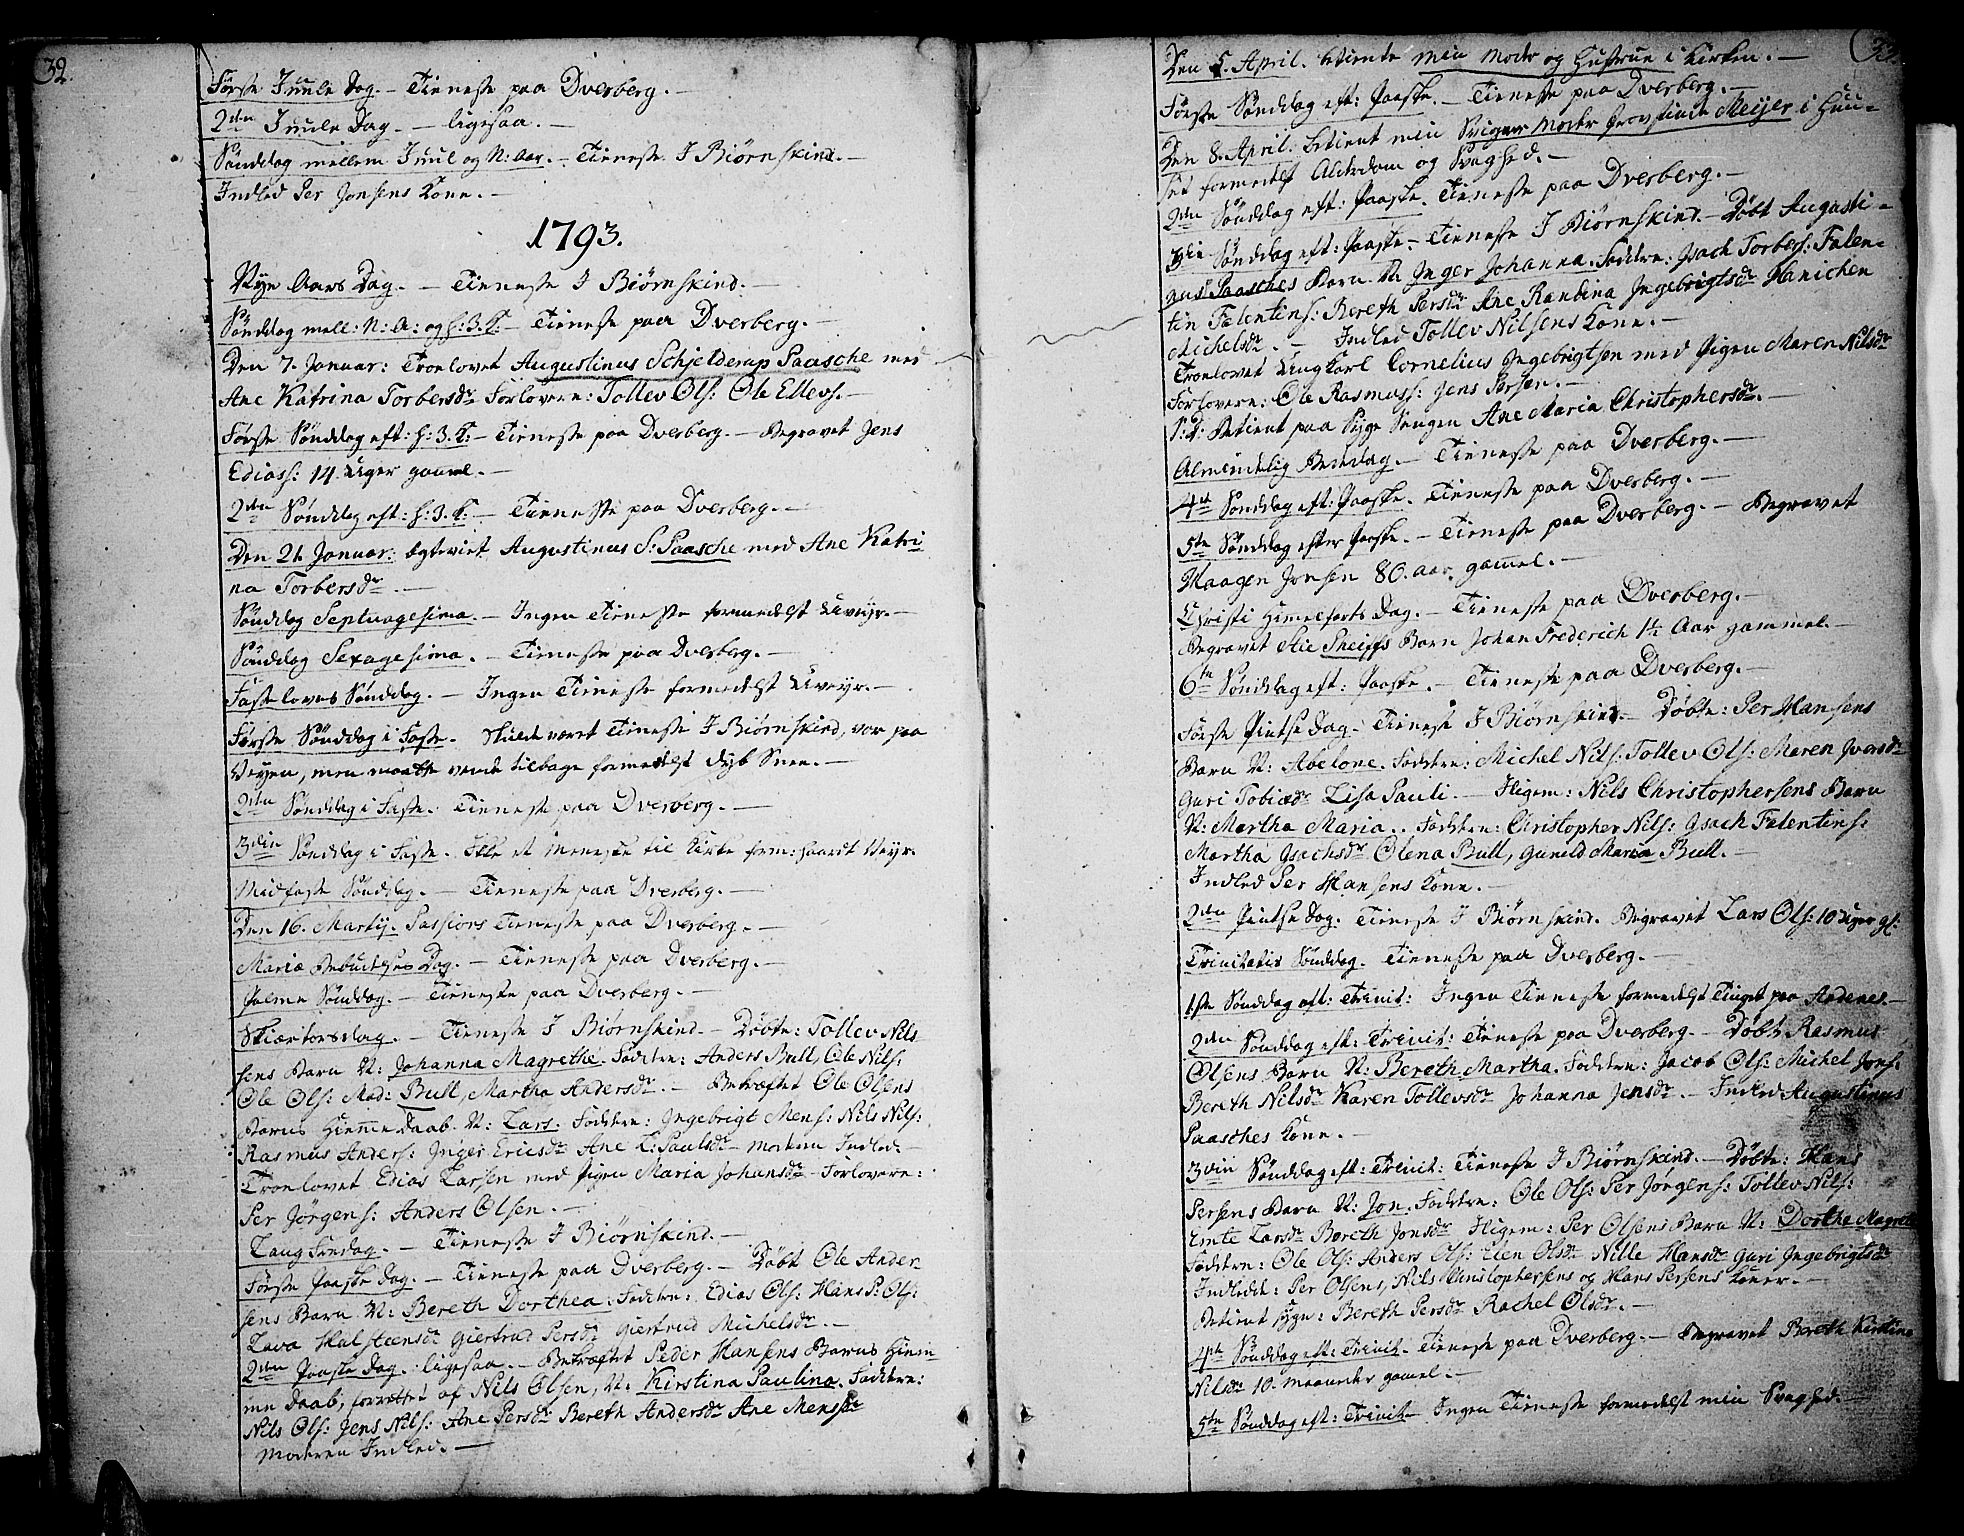 32.
Første Juule Dag. – Tieneste paa Dverberg. –
2den Juule Dag. – ligesaa. –
Sønddag mellem Juul og N: Aar. – Tieneste I Biørnskind. –
Indled Per Jonsens Kone. –
1793.
Nye Aars Dag. – Tieneste I Biørnskind. –
Sønddag mell: N: A: og H: 3. K: – Tieneste paa Dverberg. –
Den 7. Januar: Troelovet Augustinus Schjelderup Paasche med
Ane Katrina Torbersdr Forlovere: Tollev Ols: Ole Ellevs. –
Første Sønddag eft: H: 3. K: – Tieneste paa Dverberg – Begravet Jens
Ediass: 14 Uger gamel. –
2den Sønddag eft: H: 3. K: – Tieneste paa Dverberg. –
Den 21. Januar: Egteviet Augustinus S: Paasche med Ane Katri
na Torbersdr. –
Sønddag Septuagesima. – Ingen Tieneste formedelst Uveyr. –
Sønddag Sexagesima. – Tieneste paa Dverberg. –
Fastelovns Sønddag. – Ingen Tieneste formedelst Uveyr. –
Første Sønddag i Faste. Skulde været Tieneste I Biørnskind, var paa
Veyen, men maatte vende tilbage formedelst dyb Snee. –
2den Sønddag i Faste. Tieneste paa Dverberg. –
3die Sønddag i Faste. Ikke et Meneske til Kirke form: haardt Veyr.
Midfaste Sønddag. – Tieneste paa Dverberg. –
Den 16. Martij. Passions Tieneste paa Dverberg. –
Mariæ Bebudelses Dag. – Tieneste paa Dverberg. –
Palme Sønddag. – Tieneste paa Dverberg. –
Skiærtorsdag. – Tieneste I Biørnskind. – Døbte: Tollev Nils
sens Barn N: Johanna Magrethe. Faddere: Anders Bull, Ole Nils:
Ole Ols: Mad: Bull, Martha Andersdr. – Bekræftet Ole Olsens
Barns Hiemme Daab. N: Lars. Faddere: Ingebrigt Mens: Nils Nils:
Rasmus Anders: Inger Ericsdr Ane K: Paulsdr – Moderen Indled. –
Troelovet Edias Larsen med Pigen Maria Johansdr – Forlovere:
Per Jørgens: Anders Olsen. –
Lang Fredag. – Tieneste I Biørnskind. –
Første Paaske Dag. – Tieneste paa Dverberg. – Døbt Ole Ander
sens Barn N: Bereth Dorthea. Faddere: Edias Ols: Hans P: Ols:
Lava Halsteensdr Giertrud Persdr Giertrud Michelsdr. –
2den Paaske Dag. ligesaa. – Bekræftet Peder Hansens Barns Hiem-
me Daab, forrettet af Nils Olsen, N: Kirstina Paulina. Faddere:
Nils Ols: Jens Nils: Ane Persdr Bereth Andersdr Ane Mensdr
Moderen Indled. –
33.
Den 5. April. betiente min Moder og Hustrue i Kirken. –
Første Sønddag eft: Paaske. – Tieneste paa Dverberg. –
Den 8. April: betient min Sviger Moder Provstinde Meyer i Huu-
set formedelst Alderdom og Svaghed. –
2den Sønddag eft: Paaske. Tieneste paa Dverberg. –
3die Sønddag eft: Paaske – Tieneste I Biørnskind. – Døbt Augusti-
nus Paasches Barn N: Inger Johanna. Faddere: Isach Torbers: Falen-
tin Falentins: Bereth Persdr Ane Randina Ingebrigtsdr Hanichen
Michelsdr. – Indled Tollev Nilsens Kone. –
Troelovet Ungkarl Cornelius Ingebrigtsen med Pigen Maren Nilsdr
Forlovere: Ole Rasmuss: Jens Persen. –
S: D: Betient paa Syge Sengen Ane Maria Christophersdr. –
Almindelig Bededag. – Tieneste paa Dverberg. –
4de Sønddag eft: Paaske. Tieneste paa Dverberg. –
5te Sønddag efter Paaske. – Tieneste paa Dverberg. – Begravet
Haagen Jonsen 80. aar gamel. –
Christi Himelfarts Dag. – Tieneste paa Dverberg. –
Begravet Barn Johan Frederich 1½ Aar gammel. –
6te Sønddag eft: Paaske. – Tieneste paa Dverberg. –
Første Pintse Dag – Tieneste I Biørnskind – Døbte: Per Hansens
Barn N: Abelone. Faddere: Michel Nils: Tollev Ols: Maren Iversdr
Guri Tobiædr Lisa Pauli. – Item: Nils Christophersens Barn
N: Martha Maria. Faddere: Christopher Nils: Isach Falentins:
Martha Isachsdr Olena Bull, Gunild Maria Bull. –
Indled Per Hansens Kone. –
2den Pintse Dag. Tieneste I Biørnskind. Begravet Lars Ols: 10 Uger gl:
Trinitatis Sønddag. Tieneste paa Dverberg. –
1ste Sønddag eft: Trinit: Ingen Tieneste formedelst Tinget paa Andenes. –
2den Sønddag eft: Trinit: Tieneste paa Dverberg – Døbt Rasmus
Olsens Barn N: Bereth Martha. Faddere: Jacob Ols: Michel Jons:
Bereth Nilsdr Karen Tollevsdr Johanna Jensdr. – Indled Augustinus
Paasches Kone. –
3die Sønddag eft: Trinit: Tieneste I Biørnskind. – Døbte: Hans
Persens Barn N: Jon. Faddere: Ole Ols: Per Jørgens: Tollev Nils:
Larsdr Bereth Jonsdr Item: Per Olsens Barn N: Dorthe Magreta
Faddere: Ole Ols: Anders Ols: Elen Olsdr Nille Hansdr Guri Ingebrigtsdr
Indledt: Per Olsens, Nils Christophersens og Hans Persens Koner. –
Betient syge: Bereth Persdr Rachel Olsdr. –
4de Sønddag eft: Trinit – Tieneste paa Dverberg. – Begravet Bereth Kirstina
Nilsdr 10. Maaneder gamel. –
5te Sønddag eft: Trinit – Ingen Tieneste formedelst min Svaghed. –